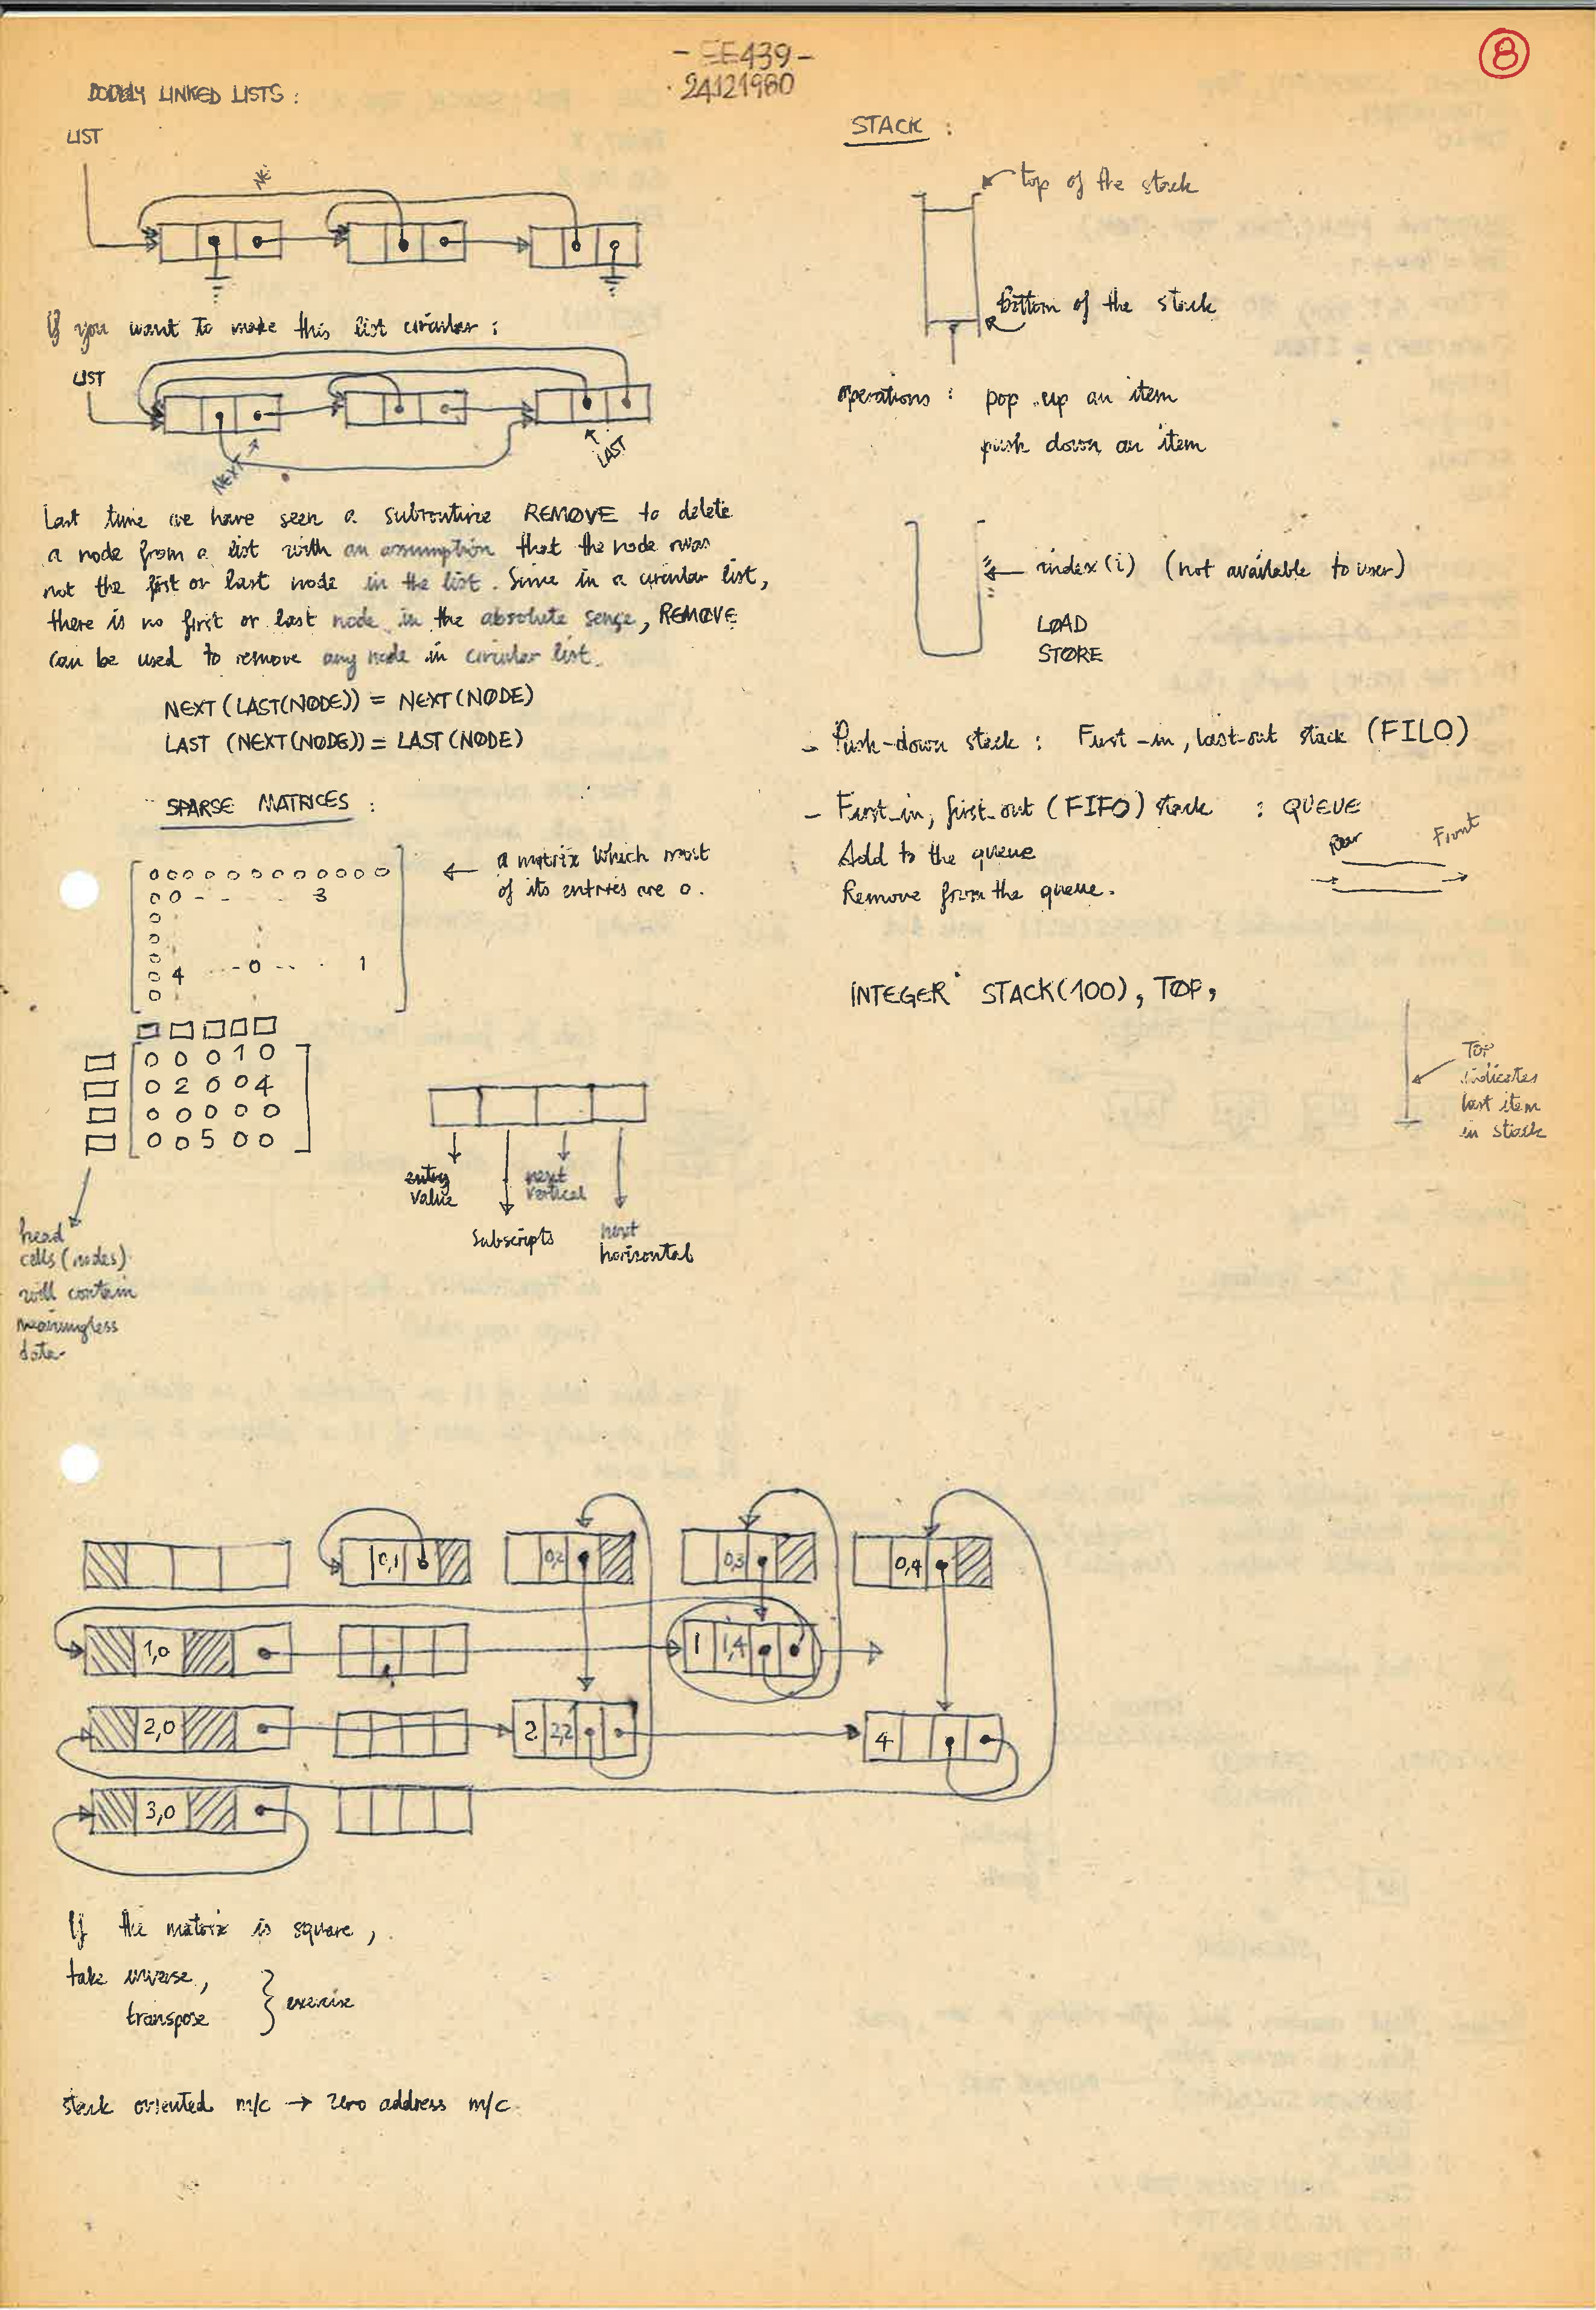 - EE439 -
24121980
8
DOUBLY LINKED LISTS :
LIST
If you want to make this list circular :
LIST
NEXT
LAST
Last time we have seen a subroutine REMOVE to delete
a node from a list with an assumption that the node was
not the first or last node in the list. Since in a circular list,
there is no first or last node in the absolute sense, REMOVE
can be used to remove any node in circular list.
NEXT (LAST(NODE)) = NEXT (NODE)
LAST (NEXT(NODE)) = LAST (NODE)
SPARSE MATRICES :
0 0 0 0 0 0 0 0 0 0 0 0
0 0 - - . . 3
0
0
0
0 4 ... - 0 - . . 1
0
a matrix which most
of its entries are 0.
0 0 0 1 0
0 2 0 0 4
0 0 0 0 0
0 0 5 0 0
head
cells (nodes)
will contain
meaningless
data.
entry
value
subscripts
next
vertical
next
horizontal
0,1
0,2
0,3
0,4
1,0
1 1,4
2,0
2 2,2
4
3,0
If the matrix is square,
take inverse,
transpose
} exercise
stack oriented m/c → zero address m/c
STACK :
top of the stack
bottom of the stack
operations : pop up an item
push down an item
index (i) (not available to user)
LOAD
STORE
- Push-down stack : First-in, last-out stack (FILO)
- First-in, first-out (FIFO) stack : QUEUE
Add to the queue
Remove from the queue.
Rear
Front
INTEGER STACK(100), TOP,
TOP
indicates
last item
in stack